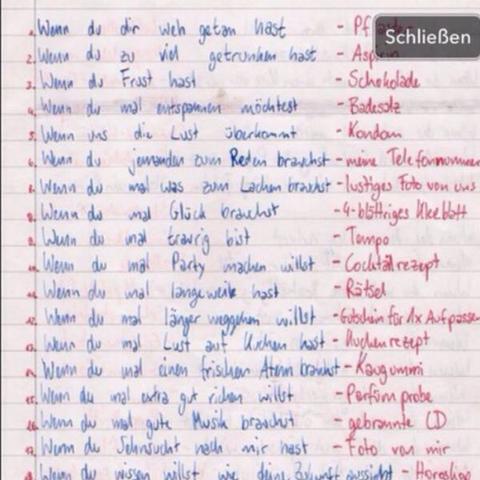 Schließen
1. Wenn du dir weh getan hast - 
2. Wenn du zu viel getrunken hast -
3. Wenn du Frust hast - Schokolade
4. Wenn du mal entspannen möchtest - Badesalz
5. Wenn uns die Lust überkommt - Kondom
6. Wenn du jemanden zum Reden brauchst - meine Telefonnummer
Wenn du mal was zum Lachen brauchst - lustiges Foto von uns
8. Wenn du mal Glück brauchst - 4-blättriges Kleeblatt
9. Wenn du mal traurig bist - Tempo
10. Wenn du mal Party machen willst - Cocktailrezept
11. Wenn du mal langeweile hast - Rätsel
12. Wenn du mal länger weggehen willst - Gutschein für 1x Aufpassen
13. Wenn du mal Lust auf Kuchen hast - Kuchenrezept
14. Wenn du mal einen frischen Atem brauchst - Kaugummi
15. Wenn du mal extra gut richen willst - Parfümprobe
16. Wenn du mal gute Musik brauchst - gebrannte CD
17. Wenn du Sehnsucht nach mir hast - Foto von mir
18. Wenn du wissen willst wie deine Zukunft aussieht - Horoskop